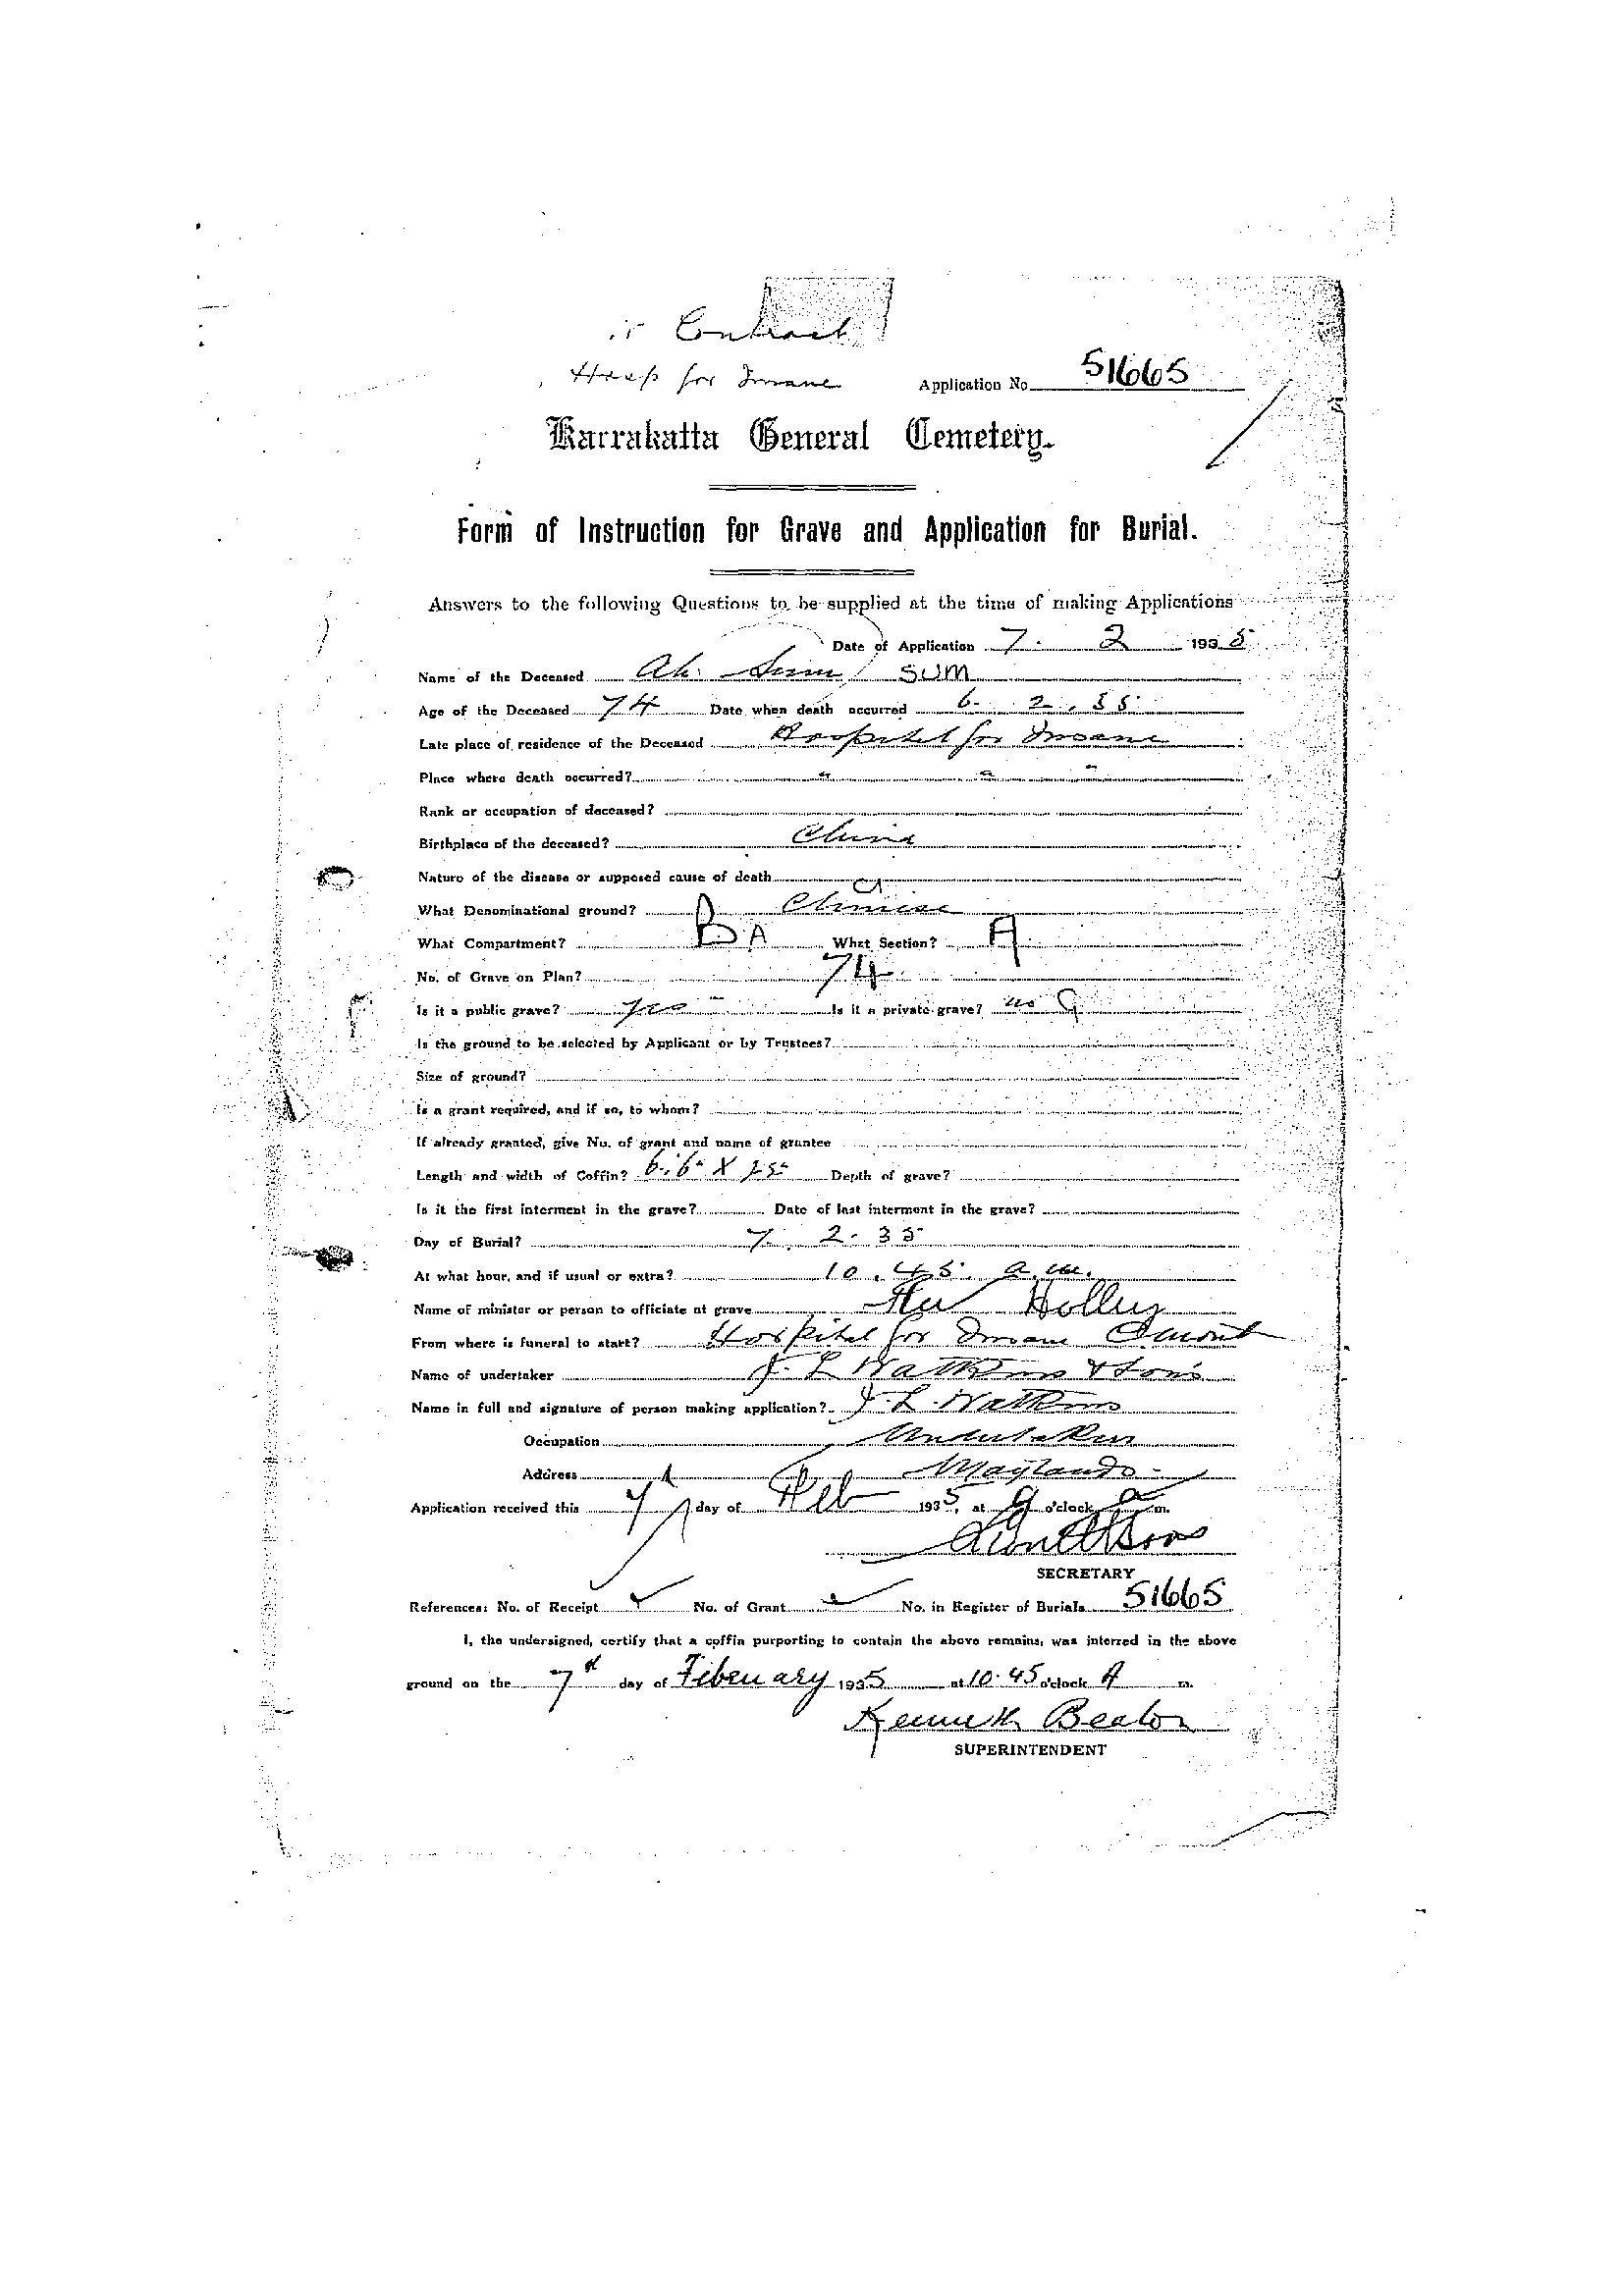 Contract
Hosp for Insane Application No 51665
Karrakatta General Cemetery.
Form of Instruction for Grave and Application for Burial.
Answers to the following Questions to be supplied at the time of making Applications
Date of Application 7. 2 1935
Name of the Deceased Ah Sum SUM
Age of the Deceased 74 Date when death occurred 6. 2. 35
Late place of residence of the Deceased Hospital for Insane
Place where death occurred? " " "
Rank or occupation of deceased?
Birthplace of the deceased? China
Nature of the disease or supposed cause of death
What Denominational ground? Chinese
What Compartment? BA What Section? A
No. of Grave on Plan? 74
Is it a public grave? Yes Is it a private grave? no
Is the ground to be selected by Applicant or by Trustees?
Size of ground?
Is a grant required, and if so, to whom?
If already granted, give No. of grant and name of grantee
Length and width of Coffin? 6.6 X Depth of grave?
Is it the first interment in the grave? Date of last interment in the grave?
Day of Burial? 7. 2. 35
At what hour, and if usual or extra? 10.45. a.m.
Name of minister or person to officiate at grave Holley
From where is funeral to start? Hospital for Insane Claremont
Name of undertaker Watkins & Sons
Name in full and signature of person making application? Watkins
Occupation Undertaker
Address Maylands
Application received this 7th day of Feb 1935, at 9 o'clock a m.
SECRETARY
References: No. of Receipt No. of Grant No. in Register of Burials 51665
I, the undersigned, certify that a coffin purporting to contain the above remains, was interred in the above
ground on the 7th day of Febuuary 1935 at 10.45 o'clock A m.
Kenneth Beaton
SUPERINTENDENT